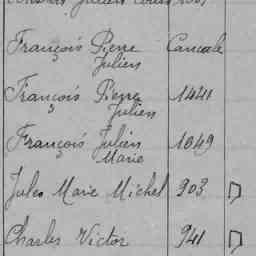 François Pierre Cancale
Julien
François Pierre 1441
Julien
François Julien 1049
Marie
Jules Marie Michel 903
Charles Victor 941